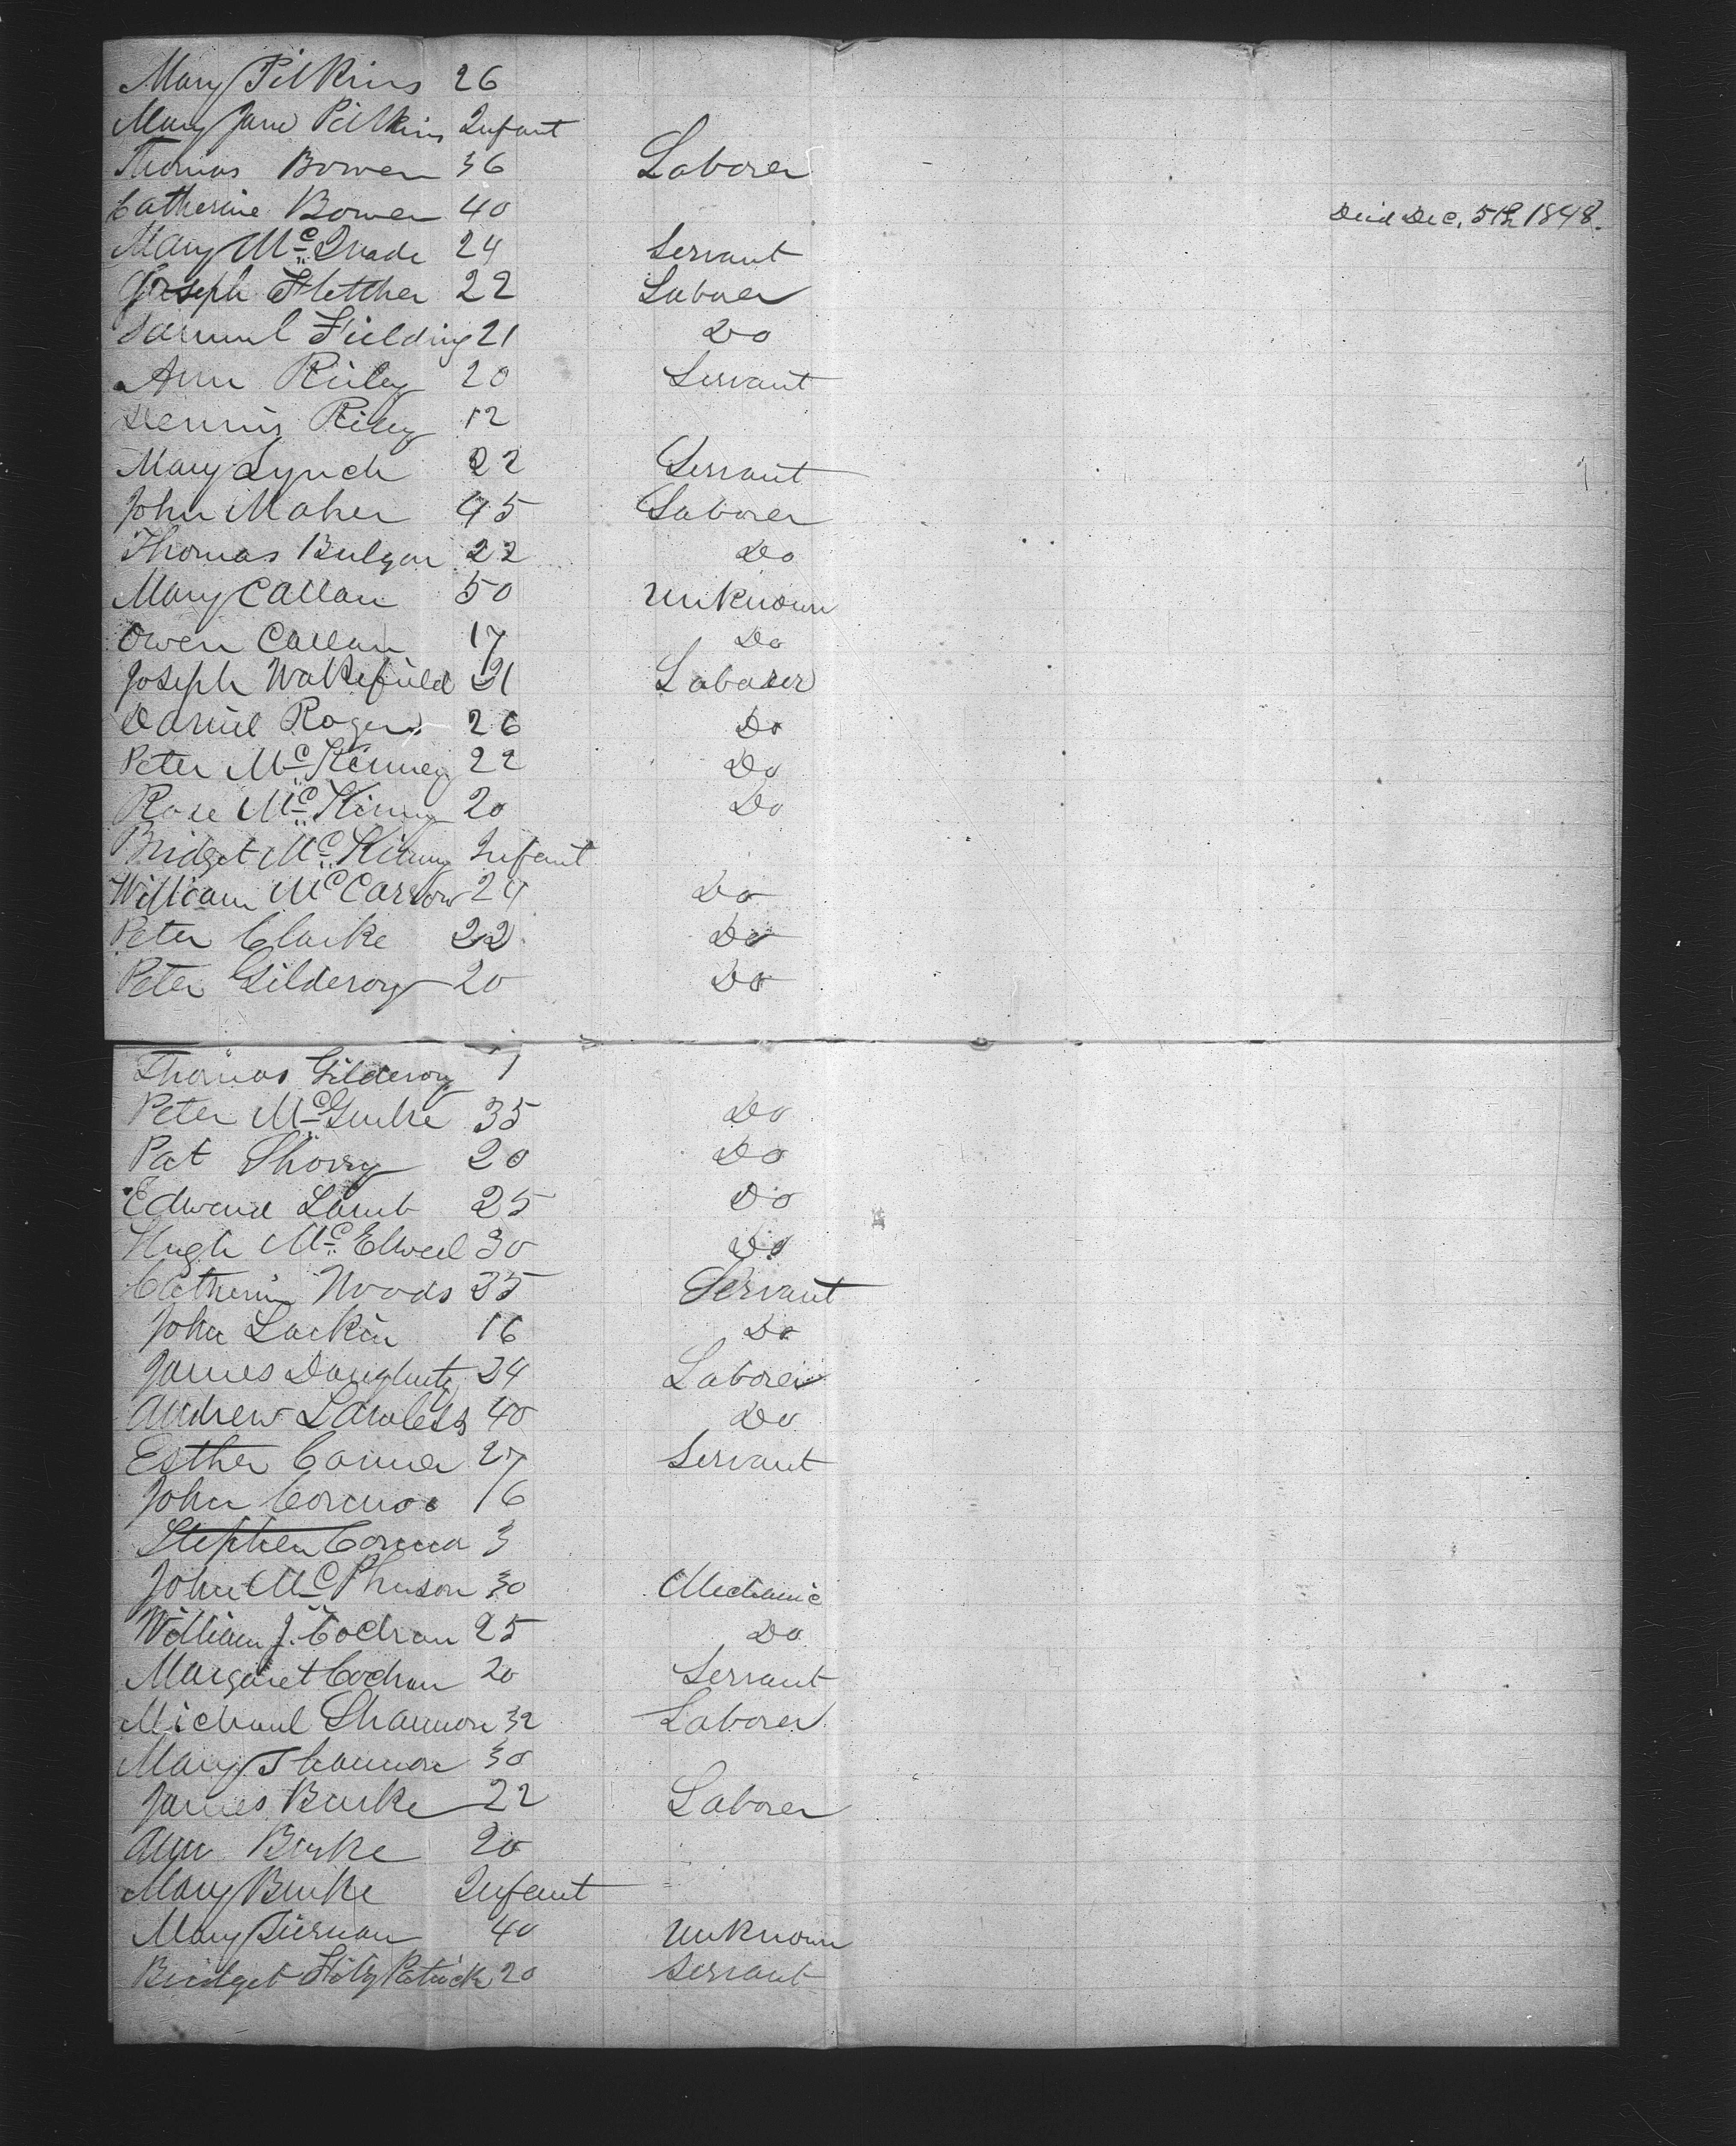 Mary Pilkins 26
Mary Jane Pilkins Infant
Thomas Bowen 36 Laborer
Catherine Bowen 40 Died Dec. 5th 1848.
Mary McQuade 24 Servant
Joseph Fletcher 22 Laborer
Samuel Fielding 21 Do
Ann Riley 20 Servant
Dennis Riley 12
Mary Lynch 22 Servant
John Maher 45 Laborer
Thomas Bulgar 22 Do
Mary Callan 50 Unknown
Owen Callan 17 Do
Joseph Wakefield 21 Laborer
Daniel Rogers 26 Do
Peter McKinney 22 Do
Rose McKinny 20 Do
Bridget McKinny Infant
William McCarron 24 Do
Peter Clarke 22 Do
Peter Gilderoy 20 Do
Thomas Gilderoy 1
Peter McGuire 35 Do
Pat Shorry 20 Do
Edward Lamb 25 Do
Hugh McElweel 30 Do
Catherine Woods 35 Servant
John Larkin 16 Do
James Daugherty 24 Laborer
Andrew Lawless 40 Do
Esther Connor 27 Servant
John Connor 16
Stephen Connor 3
John McPherson 30 Mechanic
William J. Cochran 25 Do
Margaret Cochran 20 Servant
Michaul Shannon 32 Laborer
Mary Shannon 30
James Burke 22 Laborer
Ann Burke 20
Mary Burke Infant
Mary Tiernan 40 Unknown
Bridget FitzPatrick 20 Servant